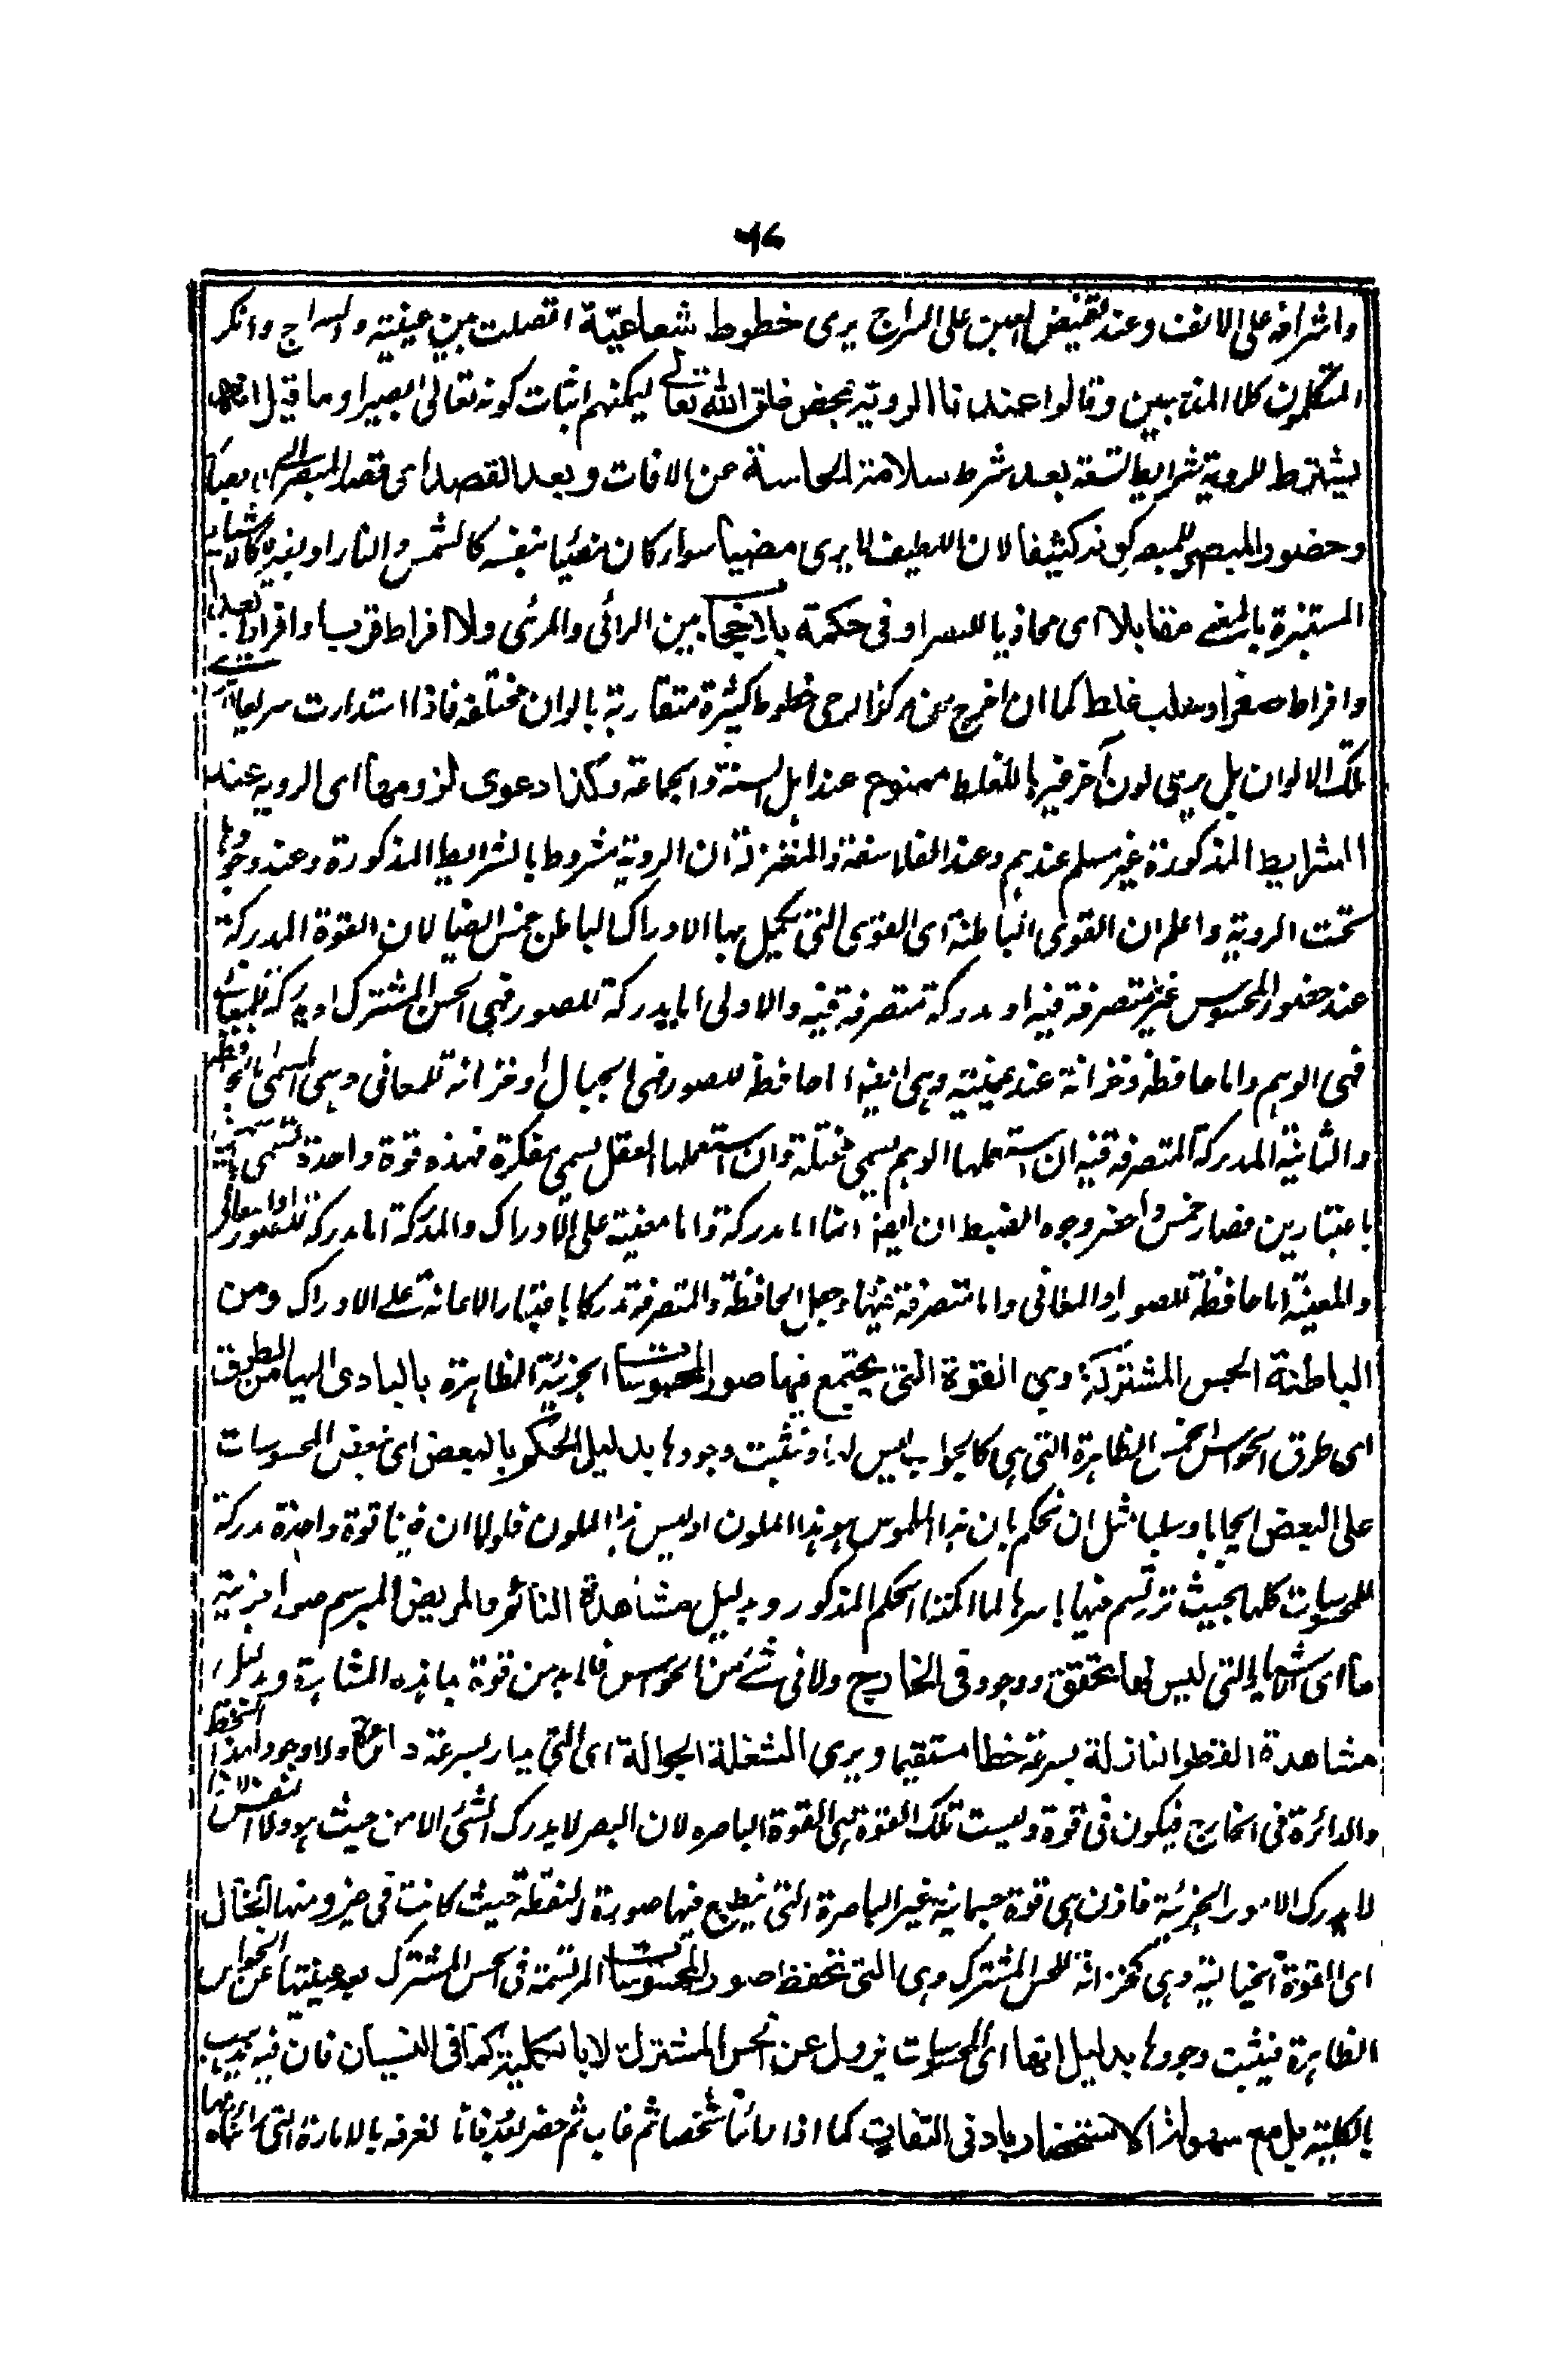 ٦٧
واشرافه على الانف وعند تغميض العين على السراج يرى خطوط شعاعيّة اتصلت بين عينيه والسراج وانكر
المتكلمون كلا المذهبين وقالوا عندنا الروية بمحض خلق الله تعالى ليمكنهم اثبات كونه تعالى بصيرا وما قيل انه
يشترط للروية شرايط تسعة بعد شرط سلامة الحاسة عن الافات وبعد القصد اى قصد المبصر
وحضور المبصر للمبصر كونه كثيفا لان اللطيف لا يرى مضيئا سواء كان مضيئا بنفسه كالشمس والنار او بغيره كالاشياء
المستنيرة بالمضى مقابلا اى محاذيا للبصر او فى حكمه بلا حجاب بين الرائى والمرئى ولا افراط قربا وافراط بعدا
وافراط صغرا وسبب غلط كما ان اخرج من مركز الرحى خطوط كثيرة متقاربة بالوان مختلفة فاذا استدارت سريعا
تلك الالوان بل يرى لون آخر غيرها للغلط ممنوع عند اهل السنة والجماعة وكذا دعوى لزومها اى الروية عند
الشرايط المذكورة غير مسلم عندهم وعند الفلاسفة والمعتزلة ان الروية مشروط بالشرايط المذكورة وعند وجودها
تحتمت الروية واعلم ان القوى الباطنة اى القوى التى يكمل بها الادراك الباطن خمس ايضا لان القوة المدركة
عند حضور المحسوس غير متصرفة فيه او مدركة متصرفة فيه والاولى اما مدركة للصور فهى الحس المشترك او مدركة للمعانى
فهى الوهم واما حافظة وخزانة عند غيبته وهى ايضا اما حافظة للصور فهى الخيال او خزانة للمعانى وهى المسمى بالحافظة
والثانية المدركة المتصرفة فيه ان استعملها الوهم يسمى متخيلة وان استعملها العقل يسمى مفكرة فهذه قوة واحدة تسمى
باعتبارين فصار خمس واحصر وجوه الضبط ان ايضا انها اما مدركة واما معينة على الادراك والمدركة اما مدركة للصور او المعانى
والمعينة اما حافظة للصور او المعانى واما متصرفة فيها وجعل الحافظة والمتصرفة مدركا باعتبار الاعانة على الادراك ومن
الباطنة الحس المشترك وهى القوة التى يجتمع فيها صور المحسوسات الجزئية الظاهرة بالتادى اليها من طرق
اى طرق الحواس الخمس الظاهرة التى هى كالجواسيس لها ونثبت وجودها بدليل الحكم بالبعض اى بعض المحسوسات
على البعض ايجابا وسلبا مثل ان نحكم بان هذا الملموس هو هذا الملون او ليس هذا الملون فلولا ان فينا قوة واحدة مدركة
للمحسوسات كلها بحيث ترتسم فيها باسرها لما امكننا الحكم المذكور وبدليل مشاهدة النائم والمريض المبرسم صورا جزئية
ما اى اشياء التى ليس لها تحقق ووجود فى الخارج ولا فى شئ من الحواس فلا بد من قوة بها هذه المشاهدة وبدليل
مشاهدة القطر النازلة بسرعة خطا مستقيما ويرى الشعلة الجوالة اى التى يدار بسرعة دائرة ولا وجود لهذا الخط
والدائرة فى الخارج فيكون فى قوة وليست تلك القوة هى القوة الباصره لان البصر لا يدرك الشئ الا من حيث هو ولا النفس لانها
لا يدرك الامور الجزئية فاذن هى قوة جسمانية غير الباصرة التى ينطبع فيها صورة النقطة حيث كانت فى حيز ومنها الخيال
اى القوة الخيالية وهى كخزانة للحس المشترك وهى التى تحفظ صور المحسوسات المرتسمة فى الحس المشترك بعد غيبتها عن الحواس
الظاهرة فيثبت وجودها بدليل انها اى المحسوسات يزول عن الحس المشترك لا بالكلية كما فى النسيان فان فيه يذهب
بالكلية بل مع سهولة الاستحضار بادنى التفات كما اذا راينا شخصا ثم غاب ثم حضر نعرفه بالامارة التى